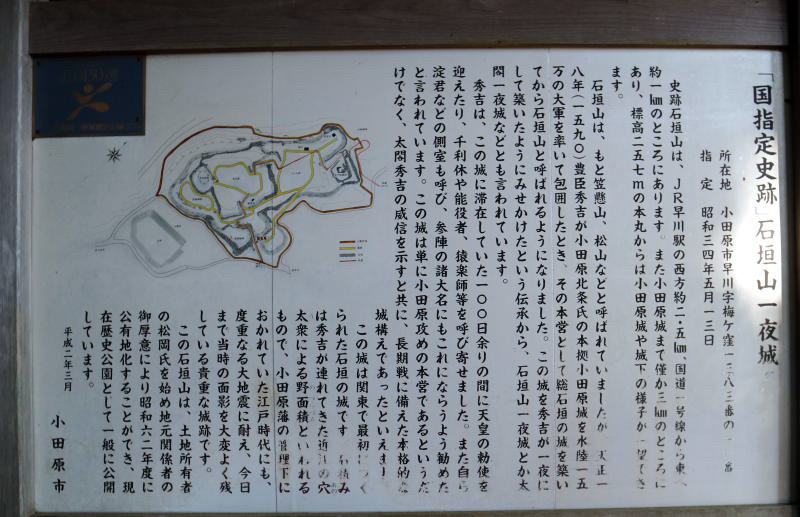 「国指定史跡」石垣山一夜城
所在地 小田原市早川字梅ケ窪一三八三番の一 
指定 昭和三四年五月一三日
史跡石垣山は、JR早川駅の西方約二・五㎞、国道一号線から東へ
約一㎞のところにあります。また小田原城まで僅か三㎞のところに
あり、標高二五七mの本丸からは小田原城や城下の様子が一望でき
ます。
石垣山は、もと笠懸山、松山などと呼ばれていましたが、天正一
八年(一五九〇)豊臣秀吉が小田原北条氏の本拠小田原城を水陸一五
万の大軍を率いて包囲したとき、その本営として総石垣の城を築い
てから石垣山と呼ばれるようになりました。この城を秀吉が一夜に
して築いたようにみせかけたという伝承から、石垣山一夜城とか太
閤一夜城などとも言われています。
秀吉は、この城に滞在していた一〇〇日余りの間に天皇の勅使を
迎えたり、千利休や能役者、猿楽師等を呼び寄せました。また自ら
淀君などの側室も呼び、参陣の諸大名にもこれにならうよう勧めた
と言われています。この城は単に小田原攻めの本営であるというだ
けでなく、太閤秀吉の威信を示すと共に、長期戦に備えた本格的な
城構えであったといえます
この城は関東で最初につく
られた石垣の城です 石積み
は秀吉が連れてきた近江の穴
太衆による野面積といわれる
もので、小田原藩の管理下に
おかれていた江戸時代にも、
度重なる大地震に耐え、今日
まで当時の面影を大変よく残
している貴重な城跡です。
この石垣山は、土地所有者
の松岡氏を始め地元関係者の
御厚意により昭和六二年度に
公有地化することができ、現
在歴史公園として一般に公開
しています。
平成二年三月
小田原市